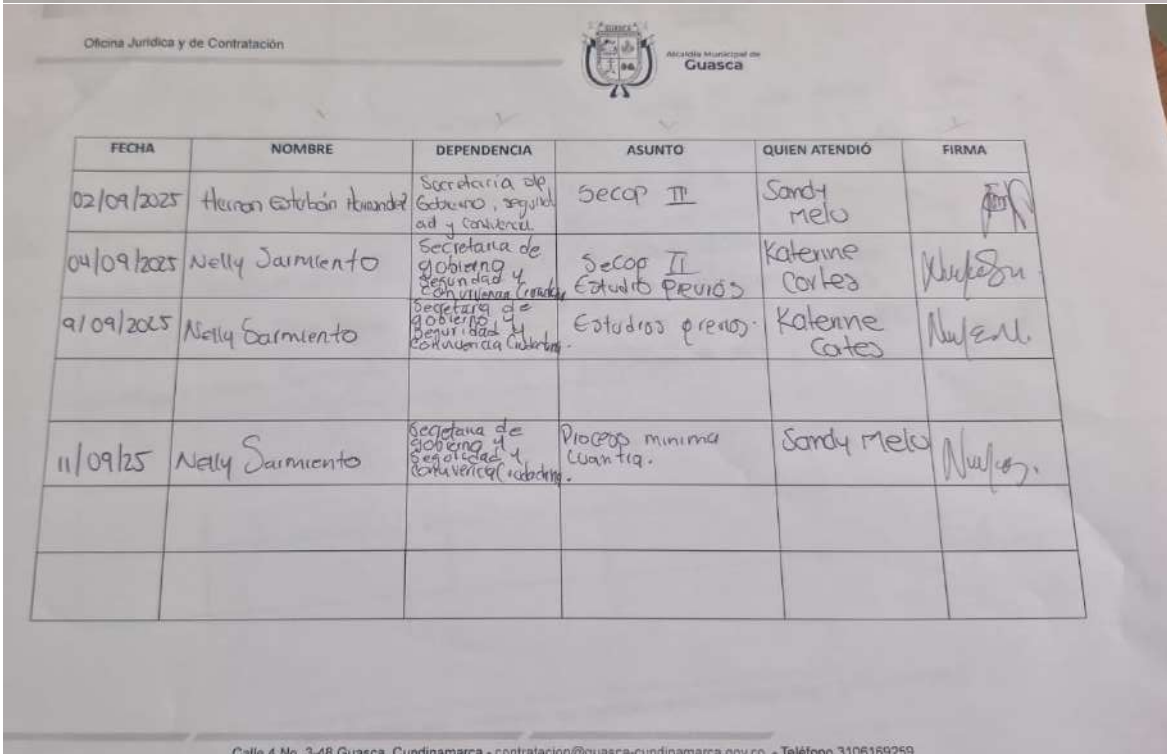 Oficina Jurídica y de Contratación
Alcaldía Municipal de
Guasca
FECHA NOMBRE DEPENDENCIA ASUNTO QUIEN ATENDIÓ FIRMA
02/09/2025 Hernan Estebán Secretaria de Gobierno, segurid ad y Secop II Sandy Melo
04/09/2025 Nelly Sarmiento Secretaria de gobierno Seguridad y Secop II Estudio Previós Katerine Cortes
9/09/2025 Nelly Sarmiento Secretaria de gobierno y Seguridad y Convivencia Estudios previos. Katerine Cortes
11/09/25 Nelly Sarmiento Secretaria de gobierno y Seguridad y Proceso minima cuantia. Sandy Melo
Calle 4 No. 3-48 Guasca, Cundinamarca - contratacion@guasca-cundinamarca.gov.co - Teléfono 3106169259